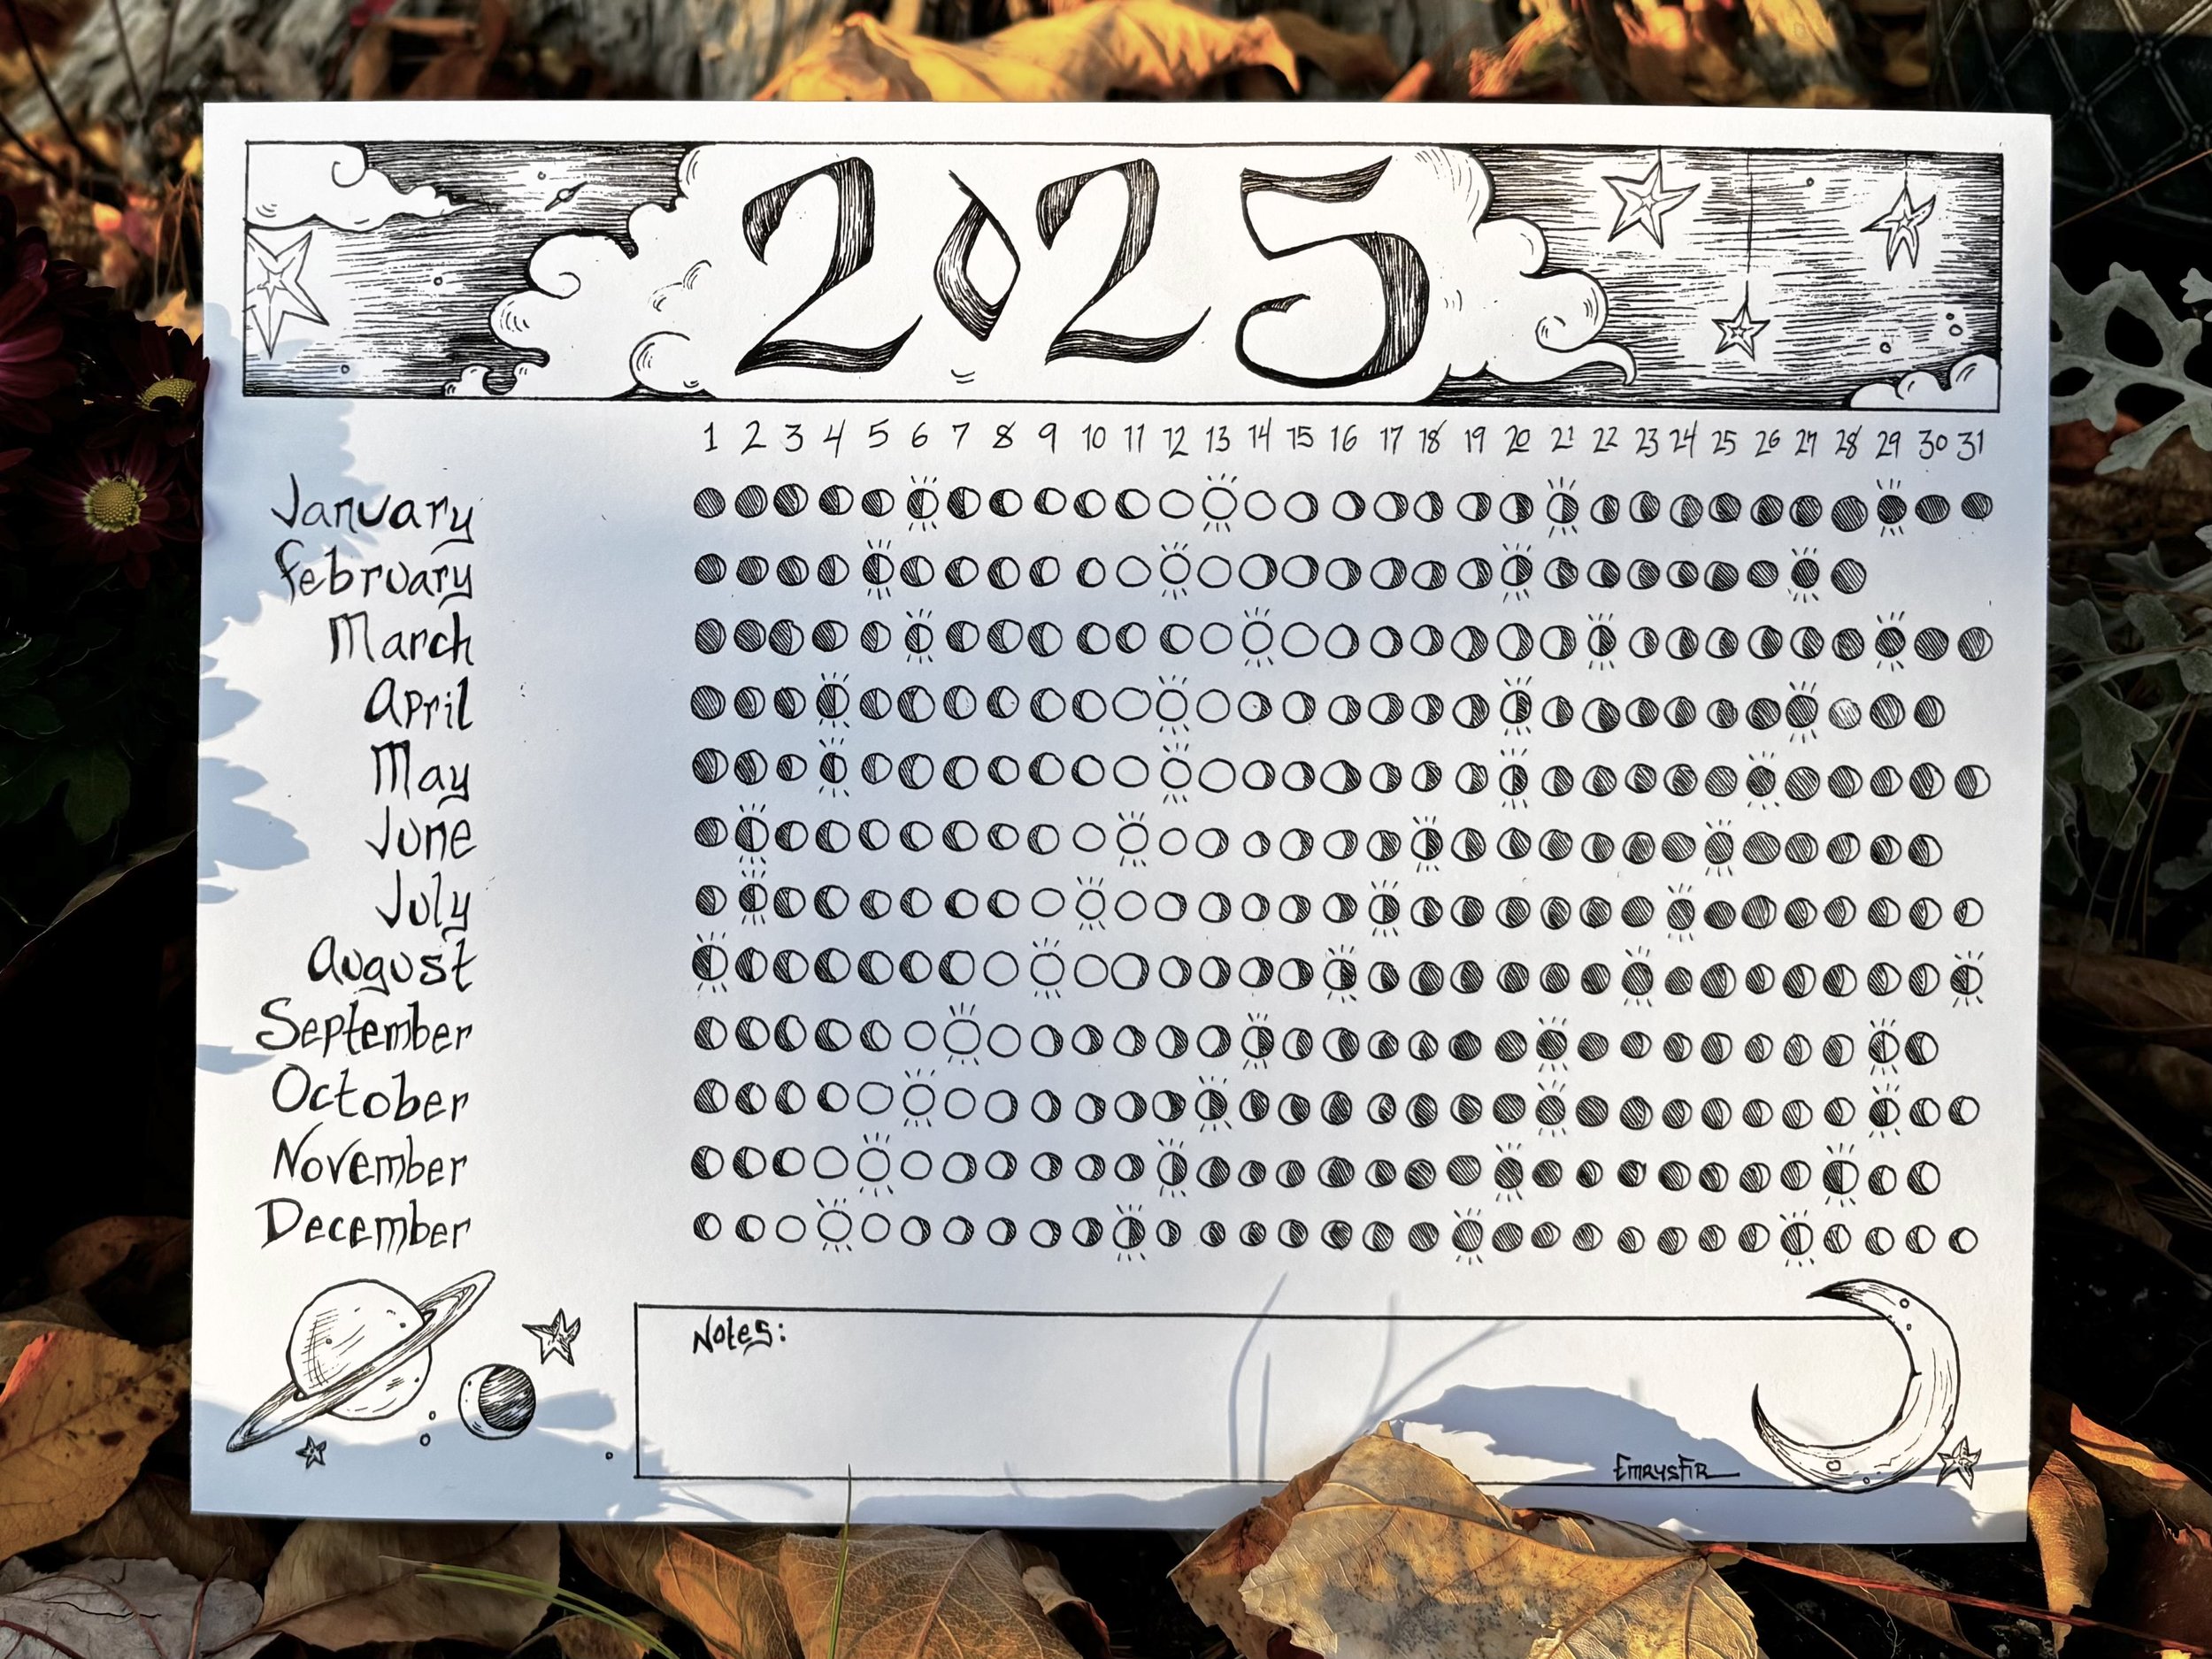 2025
1 2 3 4 5 6 7 8 9 10 11 12 13 14 15 16 17 18 19 20 21 22 23 24 25 26 27 28 29 30 31
January
february
March
April
May
June
July
August
September
October
November
December
Notes:
EmrysFir